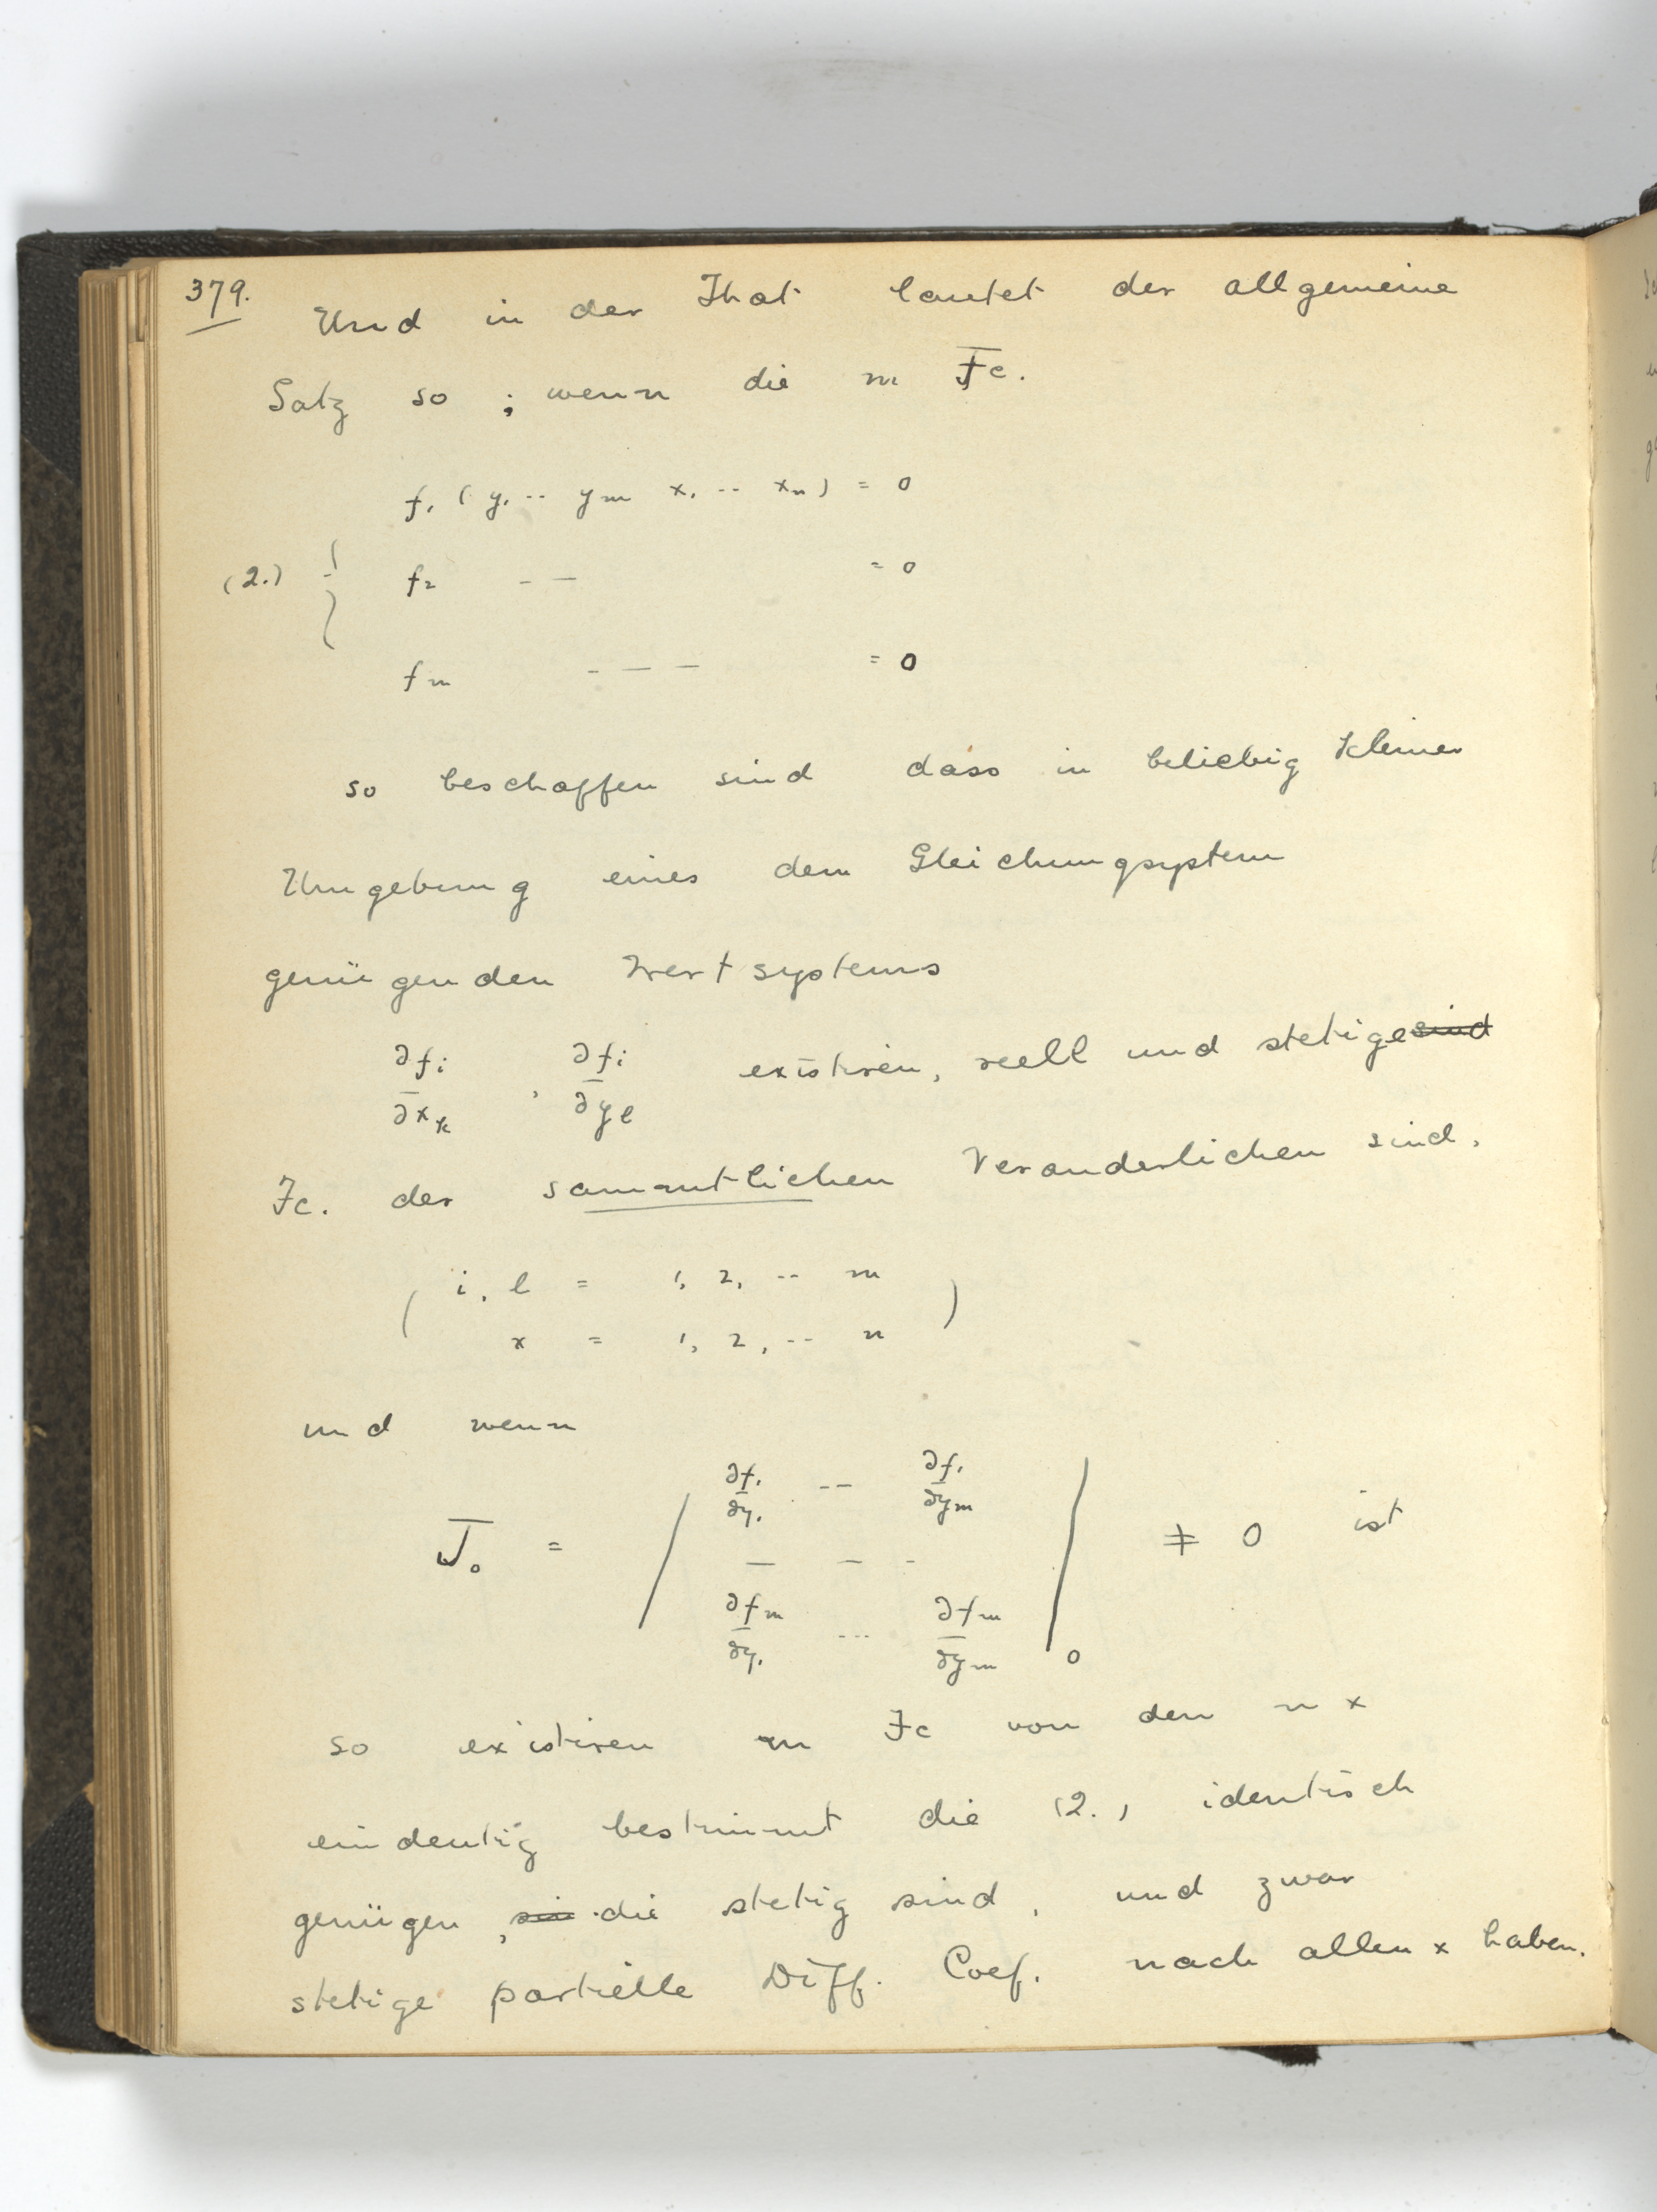 379.
Und in der That lautet der allgemeine
Satz so ; wenn die m Fc.
f₁ ( y₁ -- ym x₁ -- xn ) = 0
(2.) { f₂ -- = 0
fm - - - = 0
so beschaffen sind dass in beliebig kleiner
Umgebung eines dem Gleichungsystem
genügenden Wertsystems
∂fi/∂xk , ∂fi/∂yl existiren, reell und stetige sind
Fc. der sammtlichen Veranderlichen sind.
( i, l = 1, 2, -- m
x = 1, 2, -- n )
und wenn
J₀ = | ∂f₁/∂y₁ -- ∂f₁/∂ym
- - -
∂fm/∂y₁ --- ∂fm/∂ym |₀ ≠ 0 ist
so existiren m Fc von den n x
eindeutig bestimmt die (2.) identisch
genügen, sin die stetig sind, und zwar
stetige partielle Diff. Coef. nach allen x haben.